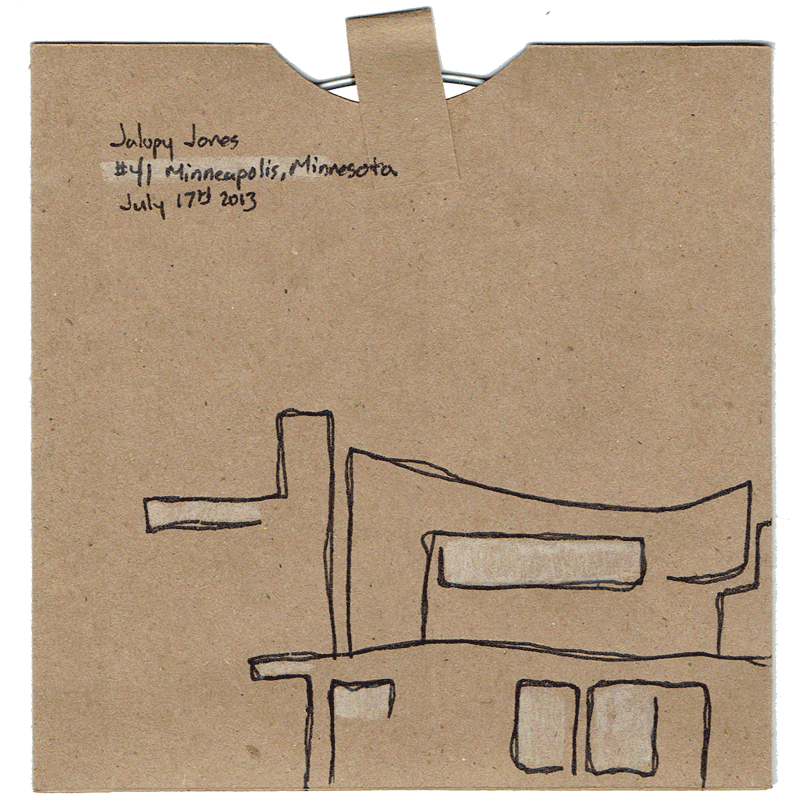 Jalopy Jones
#41 Minneapolis, Minnesota
July 17rd 2013